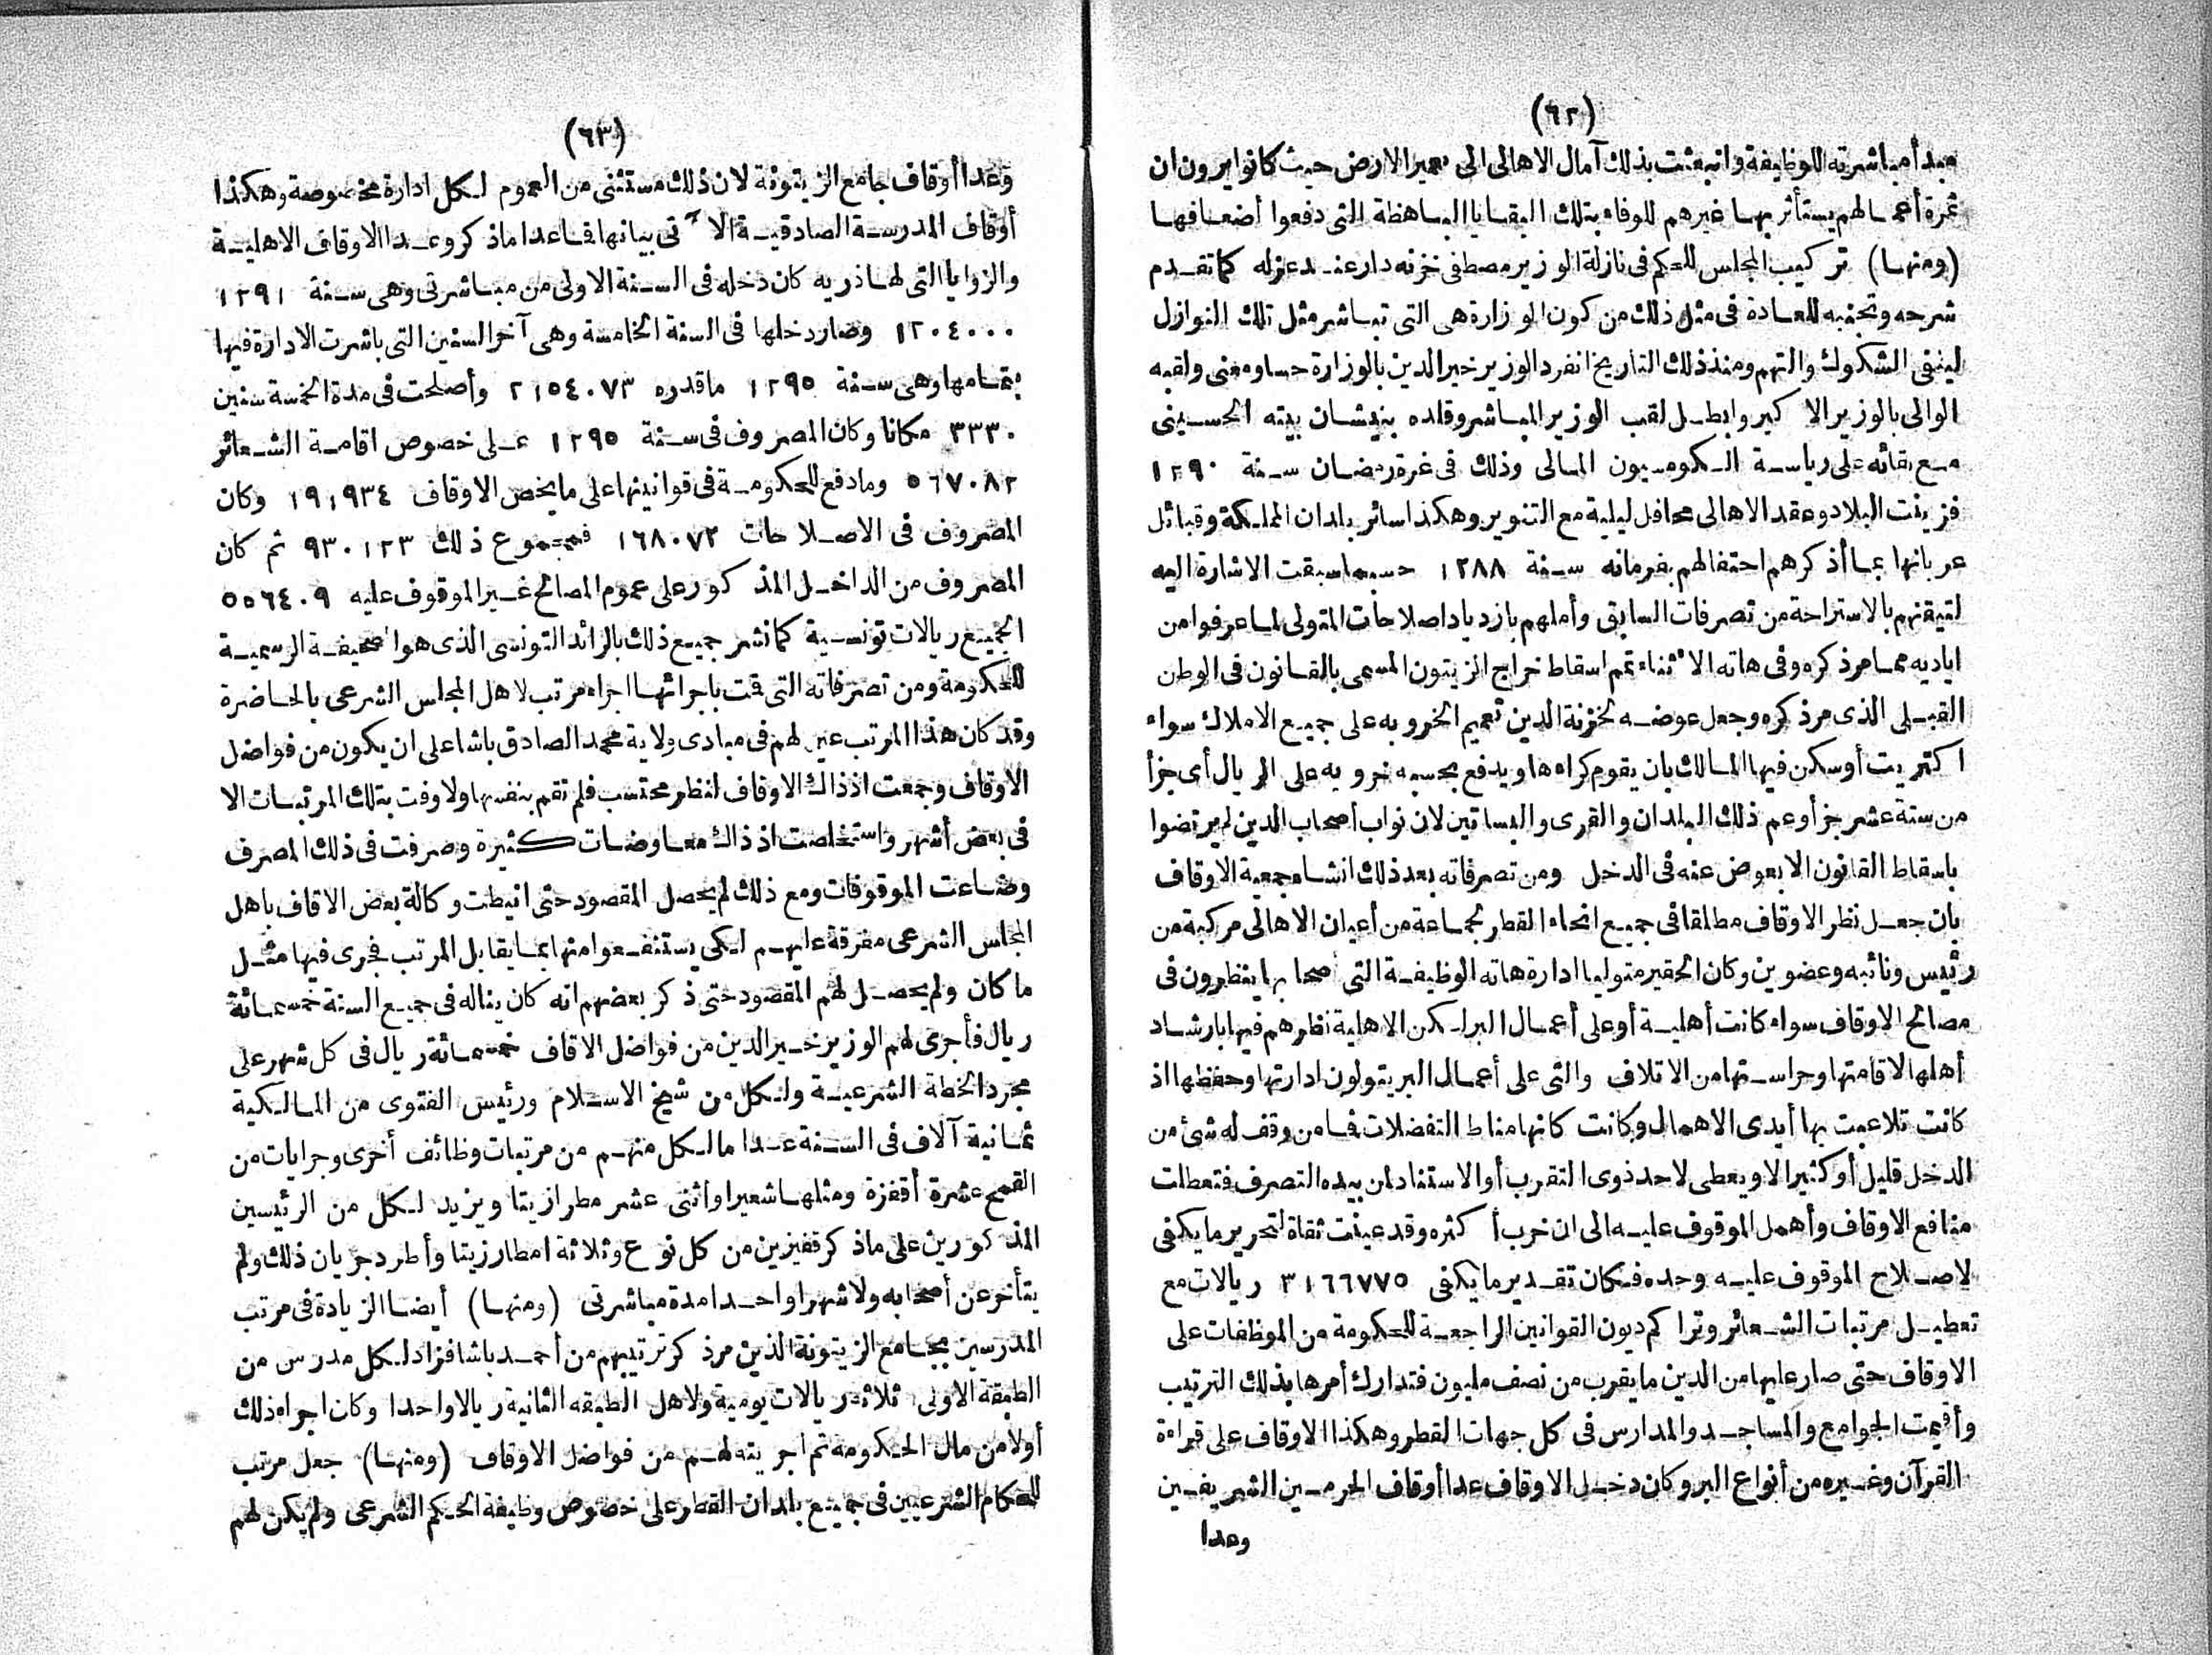 (٦٢)
مبدأ مباشرته للوظيفة وانبعثت بذلك آمال الاهالى الى تعمير الارض حيث كانوا يرون ان
ثمرة أعمالهم يستأثر بها غيرهم للوفاء بتلك البقايا الباهظة التى دفعوا أضعافها
(ومنها) تركيب المجلس للحكم فى نازلة الوزير مصطفى خزنه دار عند عزله كما تقدم
شرحه وتجنبه للعادة فى مثل ذلك من كون الوزارة هى التى تباشر مثل تلك النوازل
لينفى الشكوك والتهم ومنذ ذلك التاريخ انفرد الوزير خير الدين بالوزارة حسا ومعنى ولقبه
الوالى بالوزير الاكبر وابطل لقب الوزير المباشر وقلده بنيشان بيته الحسينى
مع بقائه على رياسة الكومسيون المالى وذلك فى غرة رمضان سنة ١٢٩٠
فزينت البلاد وعقد الاهالى محافل ليلية مع التنوير وهكذا سائر بلدان المملكة وقبائل
عربانها بما أذكرهم احتفالهم بفرمانه سنة ١٢٨٨ حسبما سبقت الاشارة اليه
لتيقنهم بالاستراحة من تصرفات السابق وأملهم بازدياد اصلاحات المتولى لما عرفوا من
اياديه مما مر ذكره وفى هاته الاثناء تم اسقاط خراج الزيتون المسمى بالقانون فى الوطن
القبلى الذى مر ذكره وجعل عوضه لخزنة الدين تعميم الخروبه على جميع الاملاك سواء
اكتريت أو سكن فيها المالك بان يقوم كراءها ويدفع بحسبه خروبه على الريال أى جزأ
من ستة عشر جزأ وعم ذلك البلدان والقرى والبساتين لان نواب أصحاب الدين لم يرتضوا
باسقاط القانون الا بعوض عنه فى الدخل ومن تصرفاته بعد ذلك انشاء جمعية الاوقاف
بان جعل نظر الاوقاف مطلقا فى جميع انحاء القطر لجماعة من أعيان الاهالى مركبة من
رئيس ونائبه وعضوين وكان الحقير متوليا ادارة هاته الوظيفة التى أصحابها ينظرون فى
مصالح الاوقاف سواء كانت أهلية أو على أعمال البر لكن الاهلية نظرهم فيها بارشاد
أهلها لاقامتها وحراستها من الاتلاف والتى على أعمال البر يتولون ادارتها وحفظها اذ
كانت تلاعبت بها أيدى الاهمال وكانت كانها مناط التفضلات فما من وقف له شئ من
الدخل قليل أو كثير الا ويعطى لاحد ذوى التقرب أو الاستناد لمن بيده التصرف فتعطلت
منافع الاوقاف وأهمل الموقوف عليه الى ان خرب أكثره وقد عينت ثقاة لتحرير ما يكفى
لاصلاح الموقوف عليه وحده فكان تقدير ما يكفى ٣١٦٦٧٧٥ ريالات مع
تعطيل مرتبات الشعائر وتراكم ديون القوانين الراجعة للحكومة من الموظفات على
الاوقاف حتى صار عليها من الدين ما يقرب من نصف مليون فتدارك أمرها بذلك الترتيب
وأقيمت الجوامع والمساجد والمدارس فى كل جهات القطر وهكذا الاوقاف على قراءة
القرآن وغيره من أنواع البر وكان دخل الاوقاف عدا أوقاف الحرمين الشريفين
وعدا
(٦٣)
وعدا أوقاف جامع الزيتونة لان ذلك مستثنى من العموم لكل ادارة مخصوصة وهكذا
أوقاف المدرسة الصادقية الآتى بيانها فما عدا ما ذكر وعدا الاوقاف الاهلية
والزوايا التى لها ذريه كان دخله فى السنة الاولى من مباشرتى وهى سنة ١٢٩١
١٢٠٤٠٠٠ وصار دخلها فى السنة الخامسة وهى آخر السنين التى باشرت الادارة فيها
بتمامها وهى سنة ١٢٩٥ ما قدره ٢١٥٤٠٧٣ وأصلحت فى مدة الخمسة سنين
٣٣٣٠ مكانا وكان المصروف فى سنة ١٢٩٥ على خصوص اقامة الشعائر
٥٦٧٠٨٢ وما دفع للحكومة فى قوانينها على ما يخص الاوقاف ١٩١٩٣٤ وكان
المصروف فى الاصلاحات ١٦٨٠٧٢ فمجموع ذلك ٩٣٠١٢٣ ثم كان
المصروف من الداخل المذكور على عموم المصالح غير الموقوف عليه ٥٥٦٤٠٩
الجميع ريالات تونسية كما نشر جميع ذلك بالرائد التونسى الذى هو الصحيفة الرسمية
للحكومة ومن تصرفاته التى قمت باجرائها اجراء مرتب لاهل المجلس الشرعى بالحاضرة
وقد كان هذا المرتب عين لهم فى مبادى ولاية محمد الصادق باشا على ان يكون من فواضل
الاوقاف وجمعت اذ ذاك الاوقاف لنظر محتسب فلم تقم بنفسها ولا وفت بتلك المرتبات الا
فى بعض أشهر واستخلصت اذ ذاك معاوضات كثيرة وصرفت فى ذلك المصرف
وضاعت الموقوفات ومع ذلك لم يحصل المقصود حتى انيطت وكالة بعض الاقاف باهل
المجلس الشرعى مفرقة عليهم لكى يستنفعوا منها بما يقابل المرتب فجرى فيها مثل
ما كان ولم يحصل لهم المقصود حتى ذكر بعضهم انه كان يناله فى جميع السنة خمسمائة
ريال فأجرى لهم الوزير خير الدين من فواضل الاقاف خمسمائة ريال فى كل شهر على
مجرد الخطة الشرعية ولكل من شيخ الاسلام ورئيس الفتوى من المالكية
ثمانية آلاف فى السنة عدا ما لكل منهم من مرتبات وظائف أخرى وجرايات من
القمح عشرة أقفزة ومثلها شعيرا واثنى عشر مطرا زيتا ويزيد لكل من الرئيسين
المذكورين على ما ذكر قفيزين من كل نوع وثلاثة امطار زيتا وأطرد جريان ذلك ولم
يتأخر عن أصحابه ولا شهرا واحدا مدة مباشرتى (ومنها) أيضا الزيادة فى مرتب
المدرسين بجامع الزيتونة الذين مر ذكر ترتيبهم من أحمد باشا فزاد لكل مدرس من
الطبقة الاولى ثلاثة ريالات يومية ولاهل الطبقه الثانية ريالا واحدا وكان اجراء ذلك
أولا من مال الحكومة ثم اجريته لهم من فواضل الاوقاف (ومنها) جعل مرتب
للحكام الشرعيين فى جميع بلدان القطر على خصوص وظيفة الحكم الشرعى ولم يكن لهم